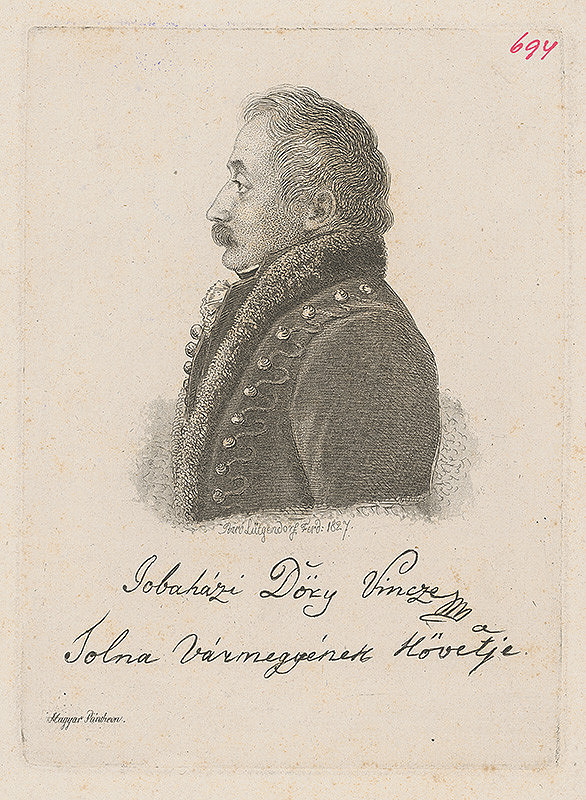 694
Báró Lütgendorf Ferd: 1827.
Jobaházi Dőry Vincze
Tolna Vármegyének Kővetje.
Magyar Pantheon.